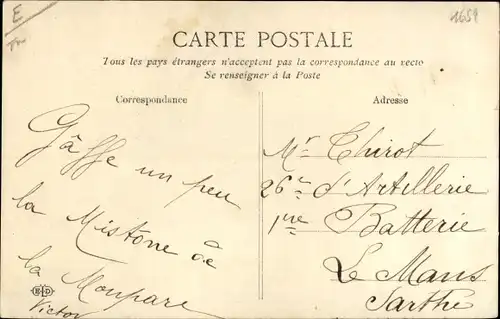 E
1659
CARTE POSTALE
Tous les pays étrangers n'acceptent pas la correspondance au recto
Se renseigner à la Poste
Correspondance
Adresse
Gâffe un peu
la Mistone de
la Moupare
Victor
ELD
Mr Thirot
26e d'Artillerie
1ère Batterie
Le Mans
Sarthe